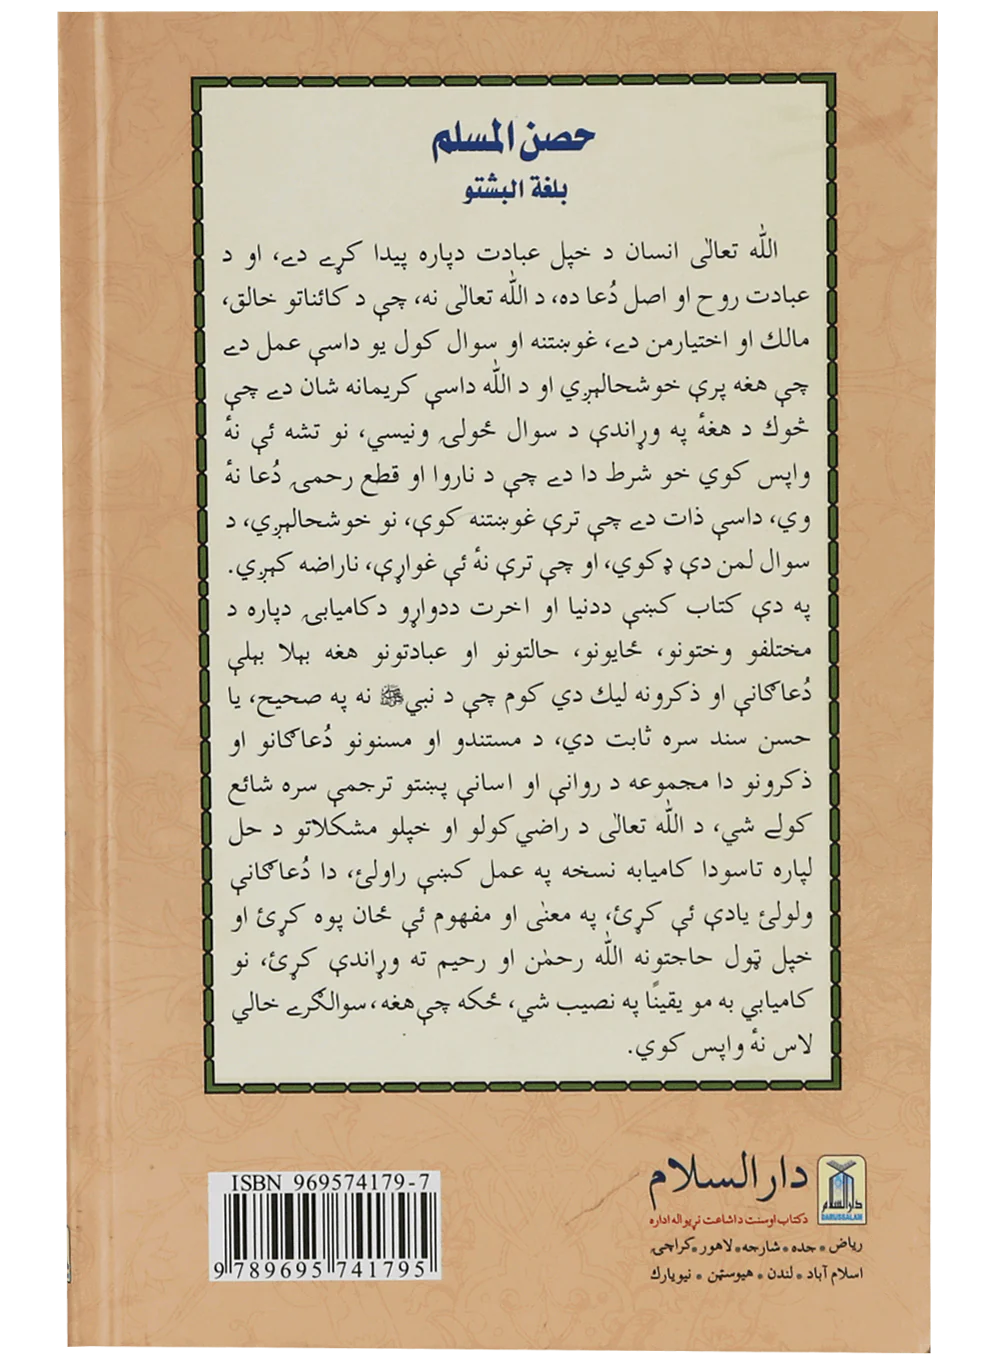 حصن المسلم
بلغة البشتو
الله تعالٰی انسان د خپل عبادت دپاره پيدا کړے دے، او د
عبادت روح او اصل دُعا ده، د الله تعالٰی نه، چې د کائناتو خالق،
مالك او اختيارمن دے، غوښتنه او سوال کول يو داسې عمل دے
چې هغه پرې خوشحاليږي او د الله داسې کريمانه شان دے چې
څوك د هغۀ په وړاندې د سوال ځولۍ ونيسي، نو تشه ئې نۀ
واپس کوي خو شرط دا دے چې د ناروا او قطع رحمۍ دُعا نۀ
وي، داسې ذات دے چې ترې غوښتنه کوې، نو خوشحاليږي، د
سوال لمن دې ډکوي، او چې ترې نۀ ئې غواړې، ناراضه کيږي.
په دې کتاب کښې ددنيا او اخرت ددواړو دکاميابۍ دپاره د
مختلفو وختونو، ځايونو، حالتونو او عبادتونو هغه بېلا بېلې
دُعاګانې او ذکرونه ليك دي کوم چې د نبيﷺ نه په صحيح، يا
حسن سند سره ثابت دي، د مستندو او مسنونو دُعاګانو او
ذکرونو دا مجموعه د روانې او اسانې پښتو ترجمې سره شائع
کولے شي، د الله تعالٰی د راضي کولو او خپلو مشکلاتو د حل
لپاره تاسودا کاميابه نسخه په عمل کښې راولئ، دا دُعاګانې
ولولئ يادې ئې کړئ، په معنٰی او مفهوم ئې ځان پوه کړئ او
خپل ټول حاجتونه الله رحمٰن او رحيم ته وړاندې کړئ، نو
کاميابي به مو يقينًا په نصيب شي، ځکه چې هغه، سوالګرے خالي
لاس نۀ واپس کوي.
دار السلام
دار السلام
DARUSSALAM
دکتاب اوسنت داشاعت نړيواله اداره
رياض • جده • شارجه • لاهور • کراچۍ
اسلام آباد • لندن • هيوسټن • نيويارك
ISBN 969574179-7
9 789695 741795